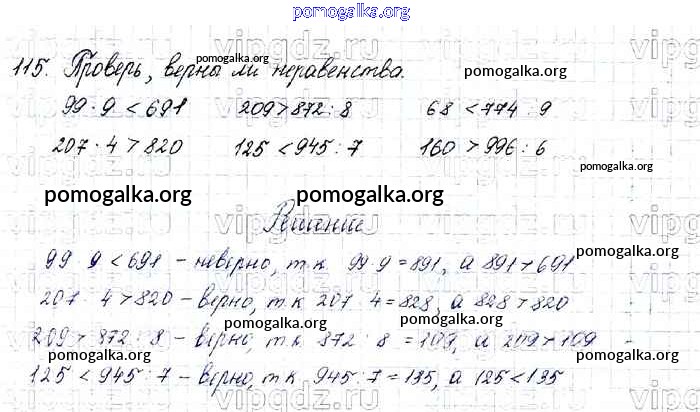 pomogalka.org
115. Проверь, верны ли неравенства.
99 · 9 < 691 209 > 872 : 8 68 < 774 : 9
207 · 4 > 820 125 < 945 : 7 160 > 996 : 6
Решение
99 9 < 691 – неверно, т к 99 9 = 891, а 891 > 691
207 · 4 > 820 – верно, т к 207 4 = 828, а 828 > 820
209 > 872 : 8 – верно, т к 872 8 = 109, а 209 > 109
125 < 945 : 7 – верно, т к 945 : 7 = 135, а 125 < 135
vipgdz.ru
pomogalka.org
pomogalka.org
pomogalka.org
pomogalka.org
pomogalka.org
pomogalka.org
pomogalka.org
pomogalka.org
pomogalka.org
pomogalka.org
pomogalka.org